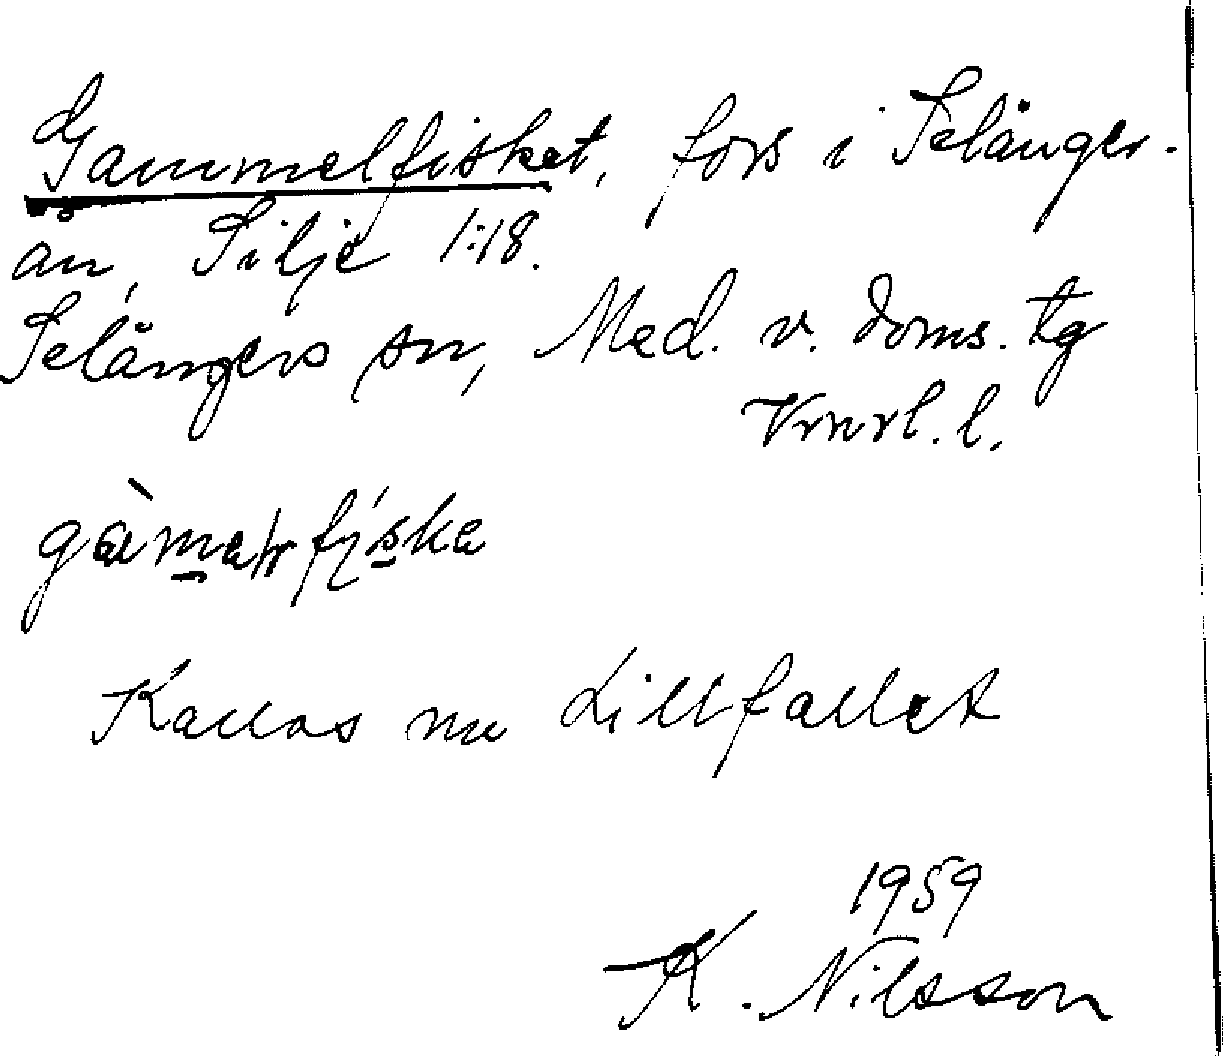 Gammelfisket, fors i Selånger-
ån, Silje 1:18.
Selångers sn, Med. v. doms. tg
Vrnrl. l.
Kallas nu Lillfallet
1959
K. Nilsson